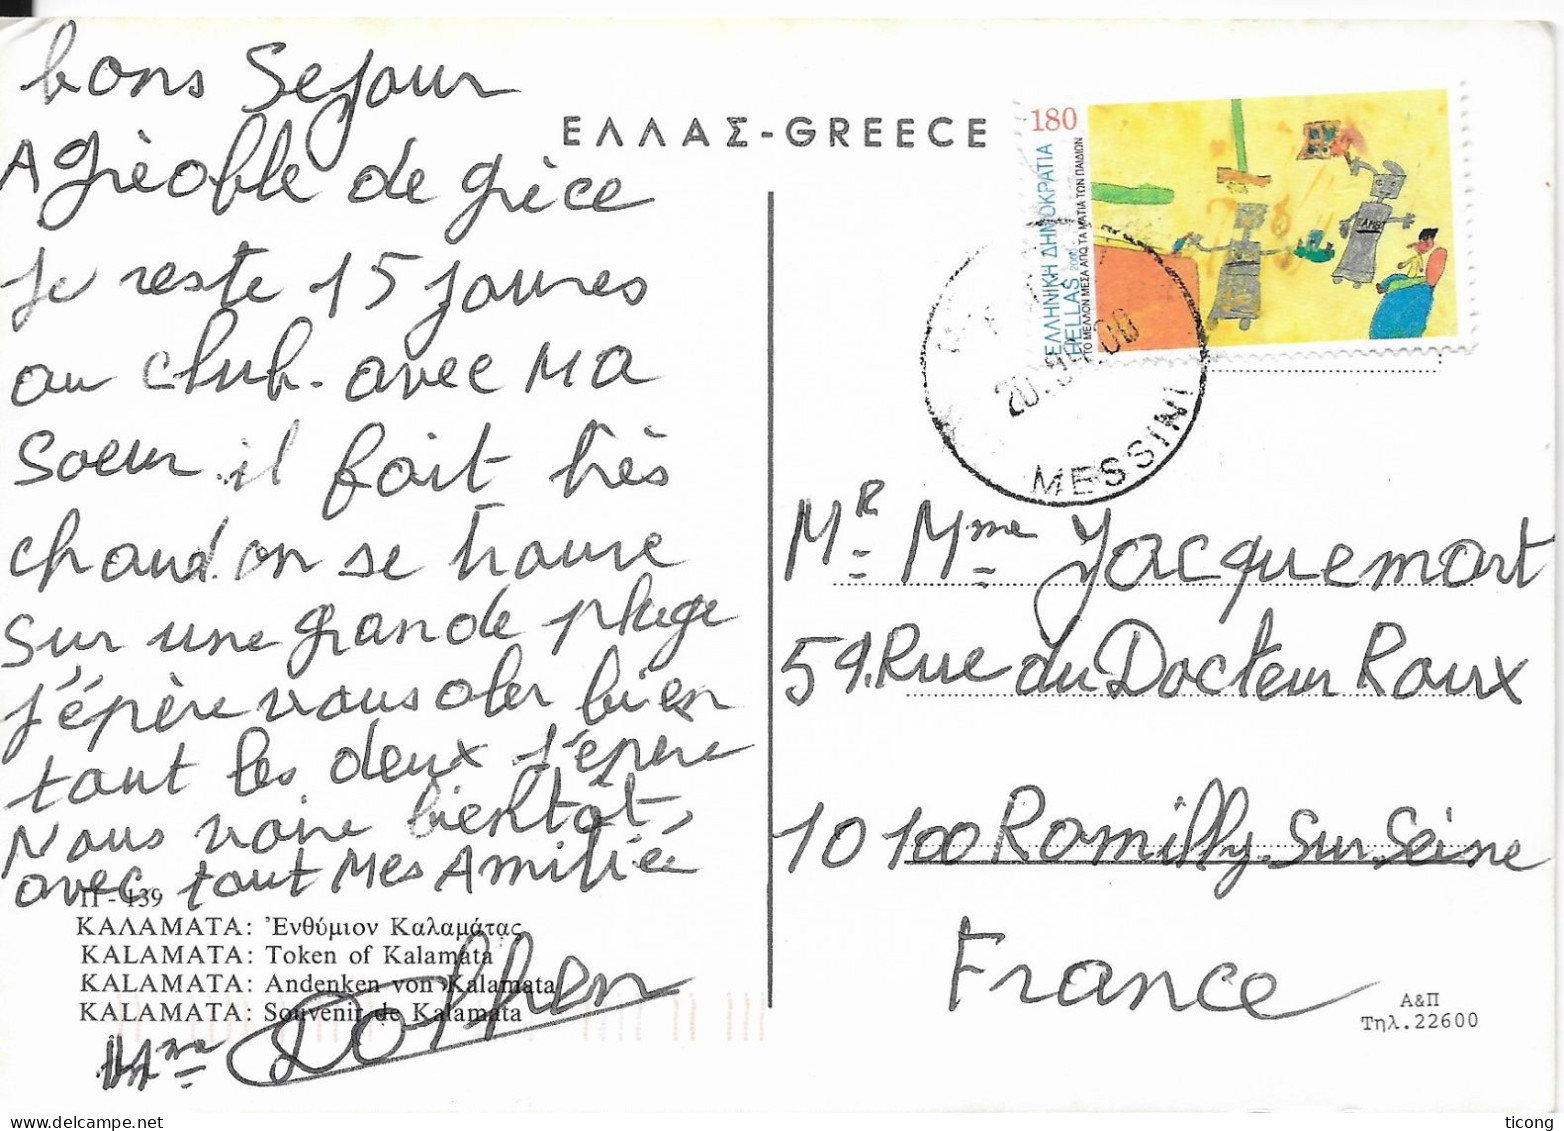 bons Sejour
Agrèoble de grèce
Je reste 15 Joures
au club. avec MA
Soeur. il fait très
chaud. on se trouve
sur une grande plage
J'épère vous aler bien
tout les deux J'épère
Nous voire bientôt,
avec tout Mes Amitiée
Π - 139
ΚΑΛΑΜΑΤΑ: Ἐνθύμιον Καλαμάτας
KALAMATA: Token of Kalamata
KALAMATA: Andenken von Kalamata
KALAMATA: Souvenir de Kalamata
Mme
ΕΛΛΑΣ-GREECE
180
ΕΛΛΗΝΙΚΗ ΔΗΜΟΚΡΑΤΙΑ
HELLAS 2000
ΤΟ ΜΕΛΛΟΝ ΜΕΣΑ ΑΠΟ ΤΑ ΜΑΤΙΑ ΤΩΝ ΠΑΙΔΙΩΝ
MESSINI
MR Mme Jacquemart
59. Rue du Docteur Roux
10100 Romilly Sur Seine
France
Α&Π
Τηλ.22600
ticong